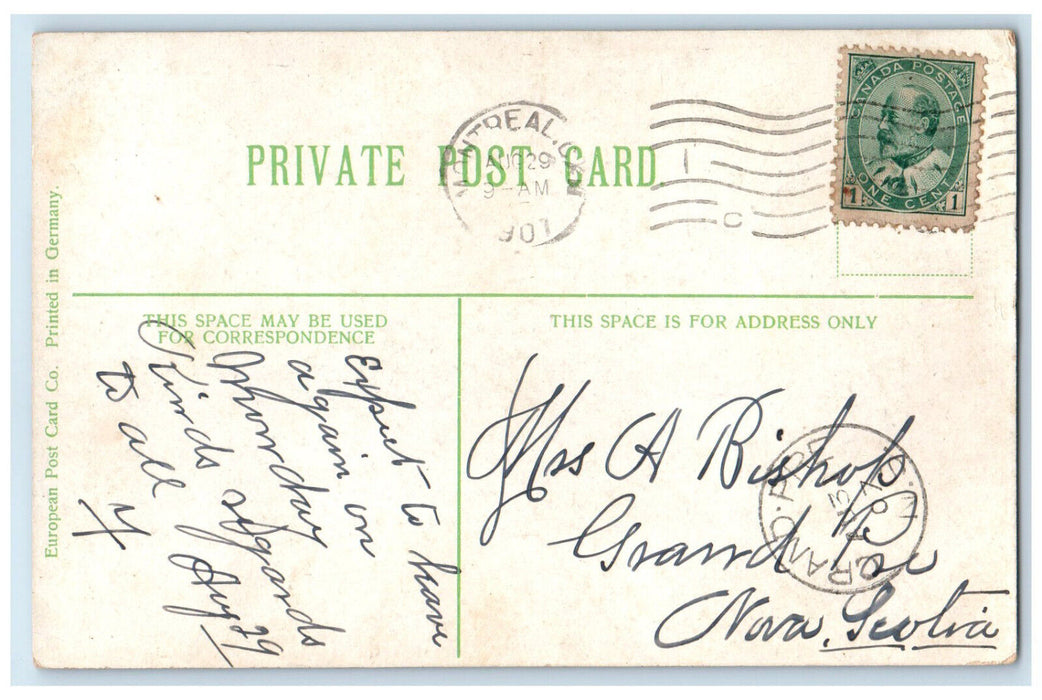 PRIVATE POST CARD
MONTREAL, CAN
AUG 29
9-AM
1907
1
C
CANADA POSTAGE
ONE CENT
1 1
European Post Card Co. Printed in Germany.
THIS SPACE MAY BE USED
FOR CORRESPONDENCE
THIS SPACE IS FOR ADDRESS ONLY
Expect to leave
again on
Thursday
Kinds regards
to all Aug 29
Y
Mrs A Bishop
Grand Pre
Nova Scotia
GRAND PRE
N.S.